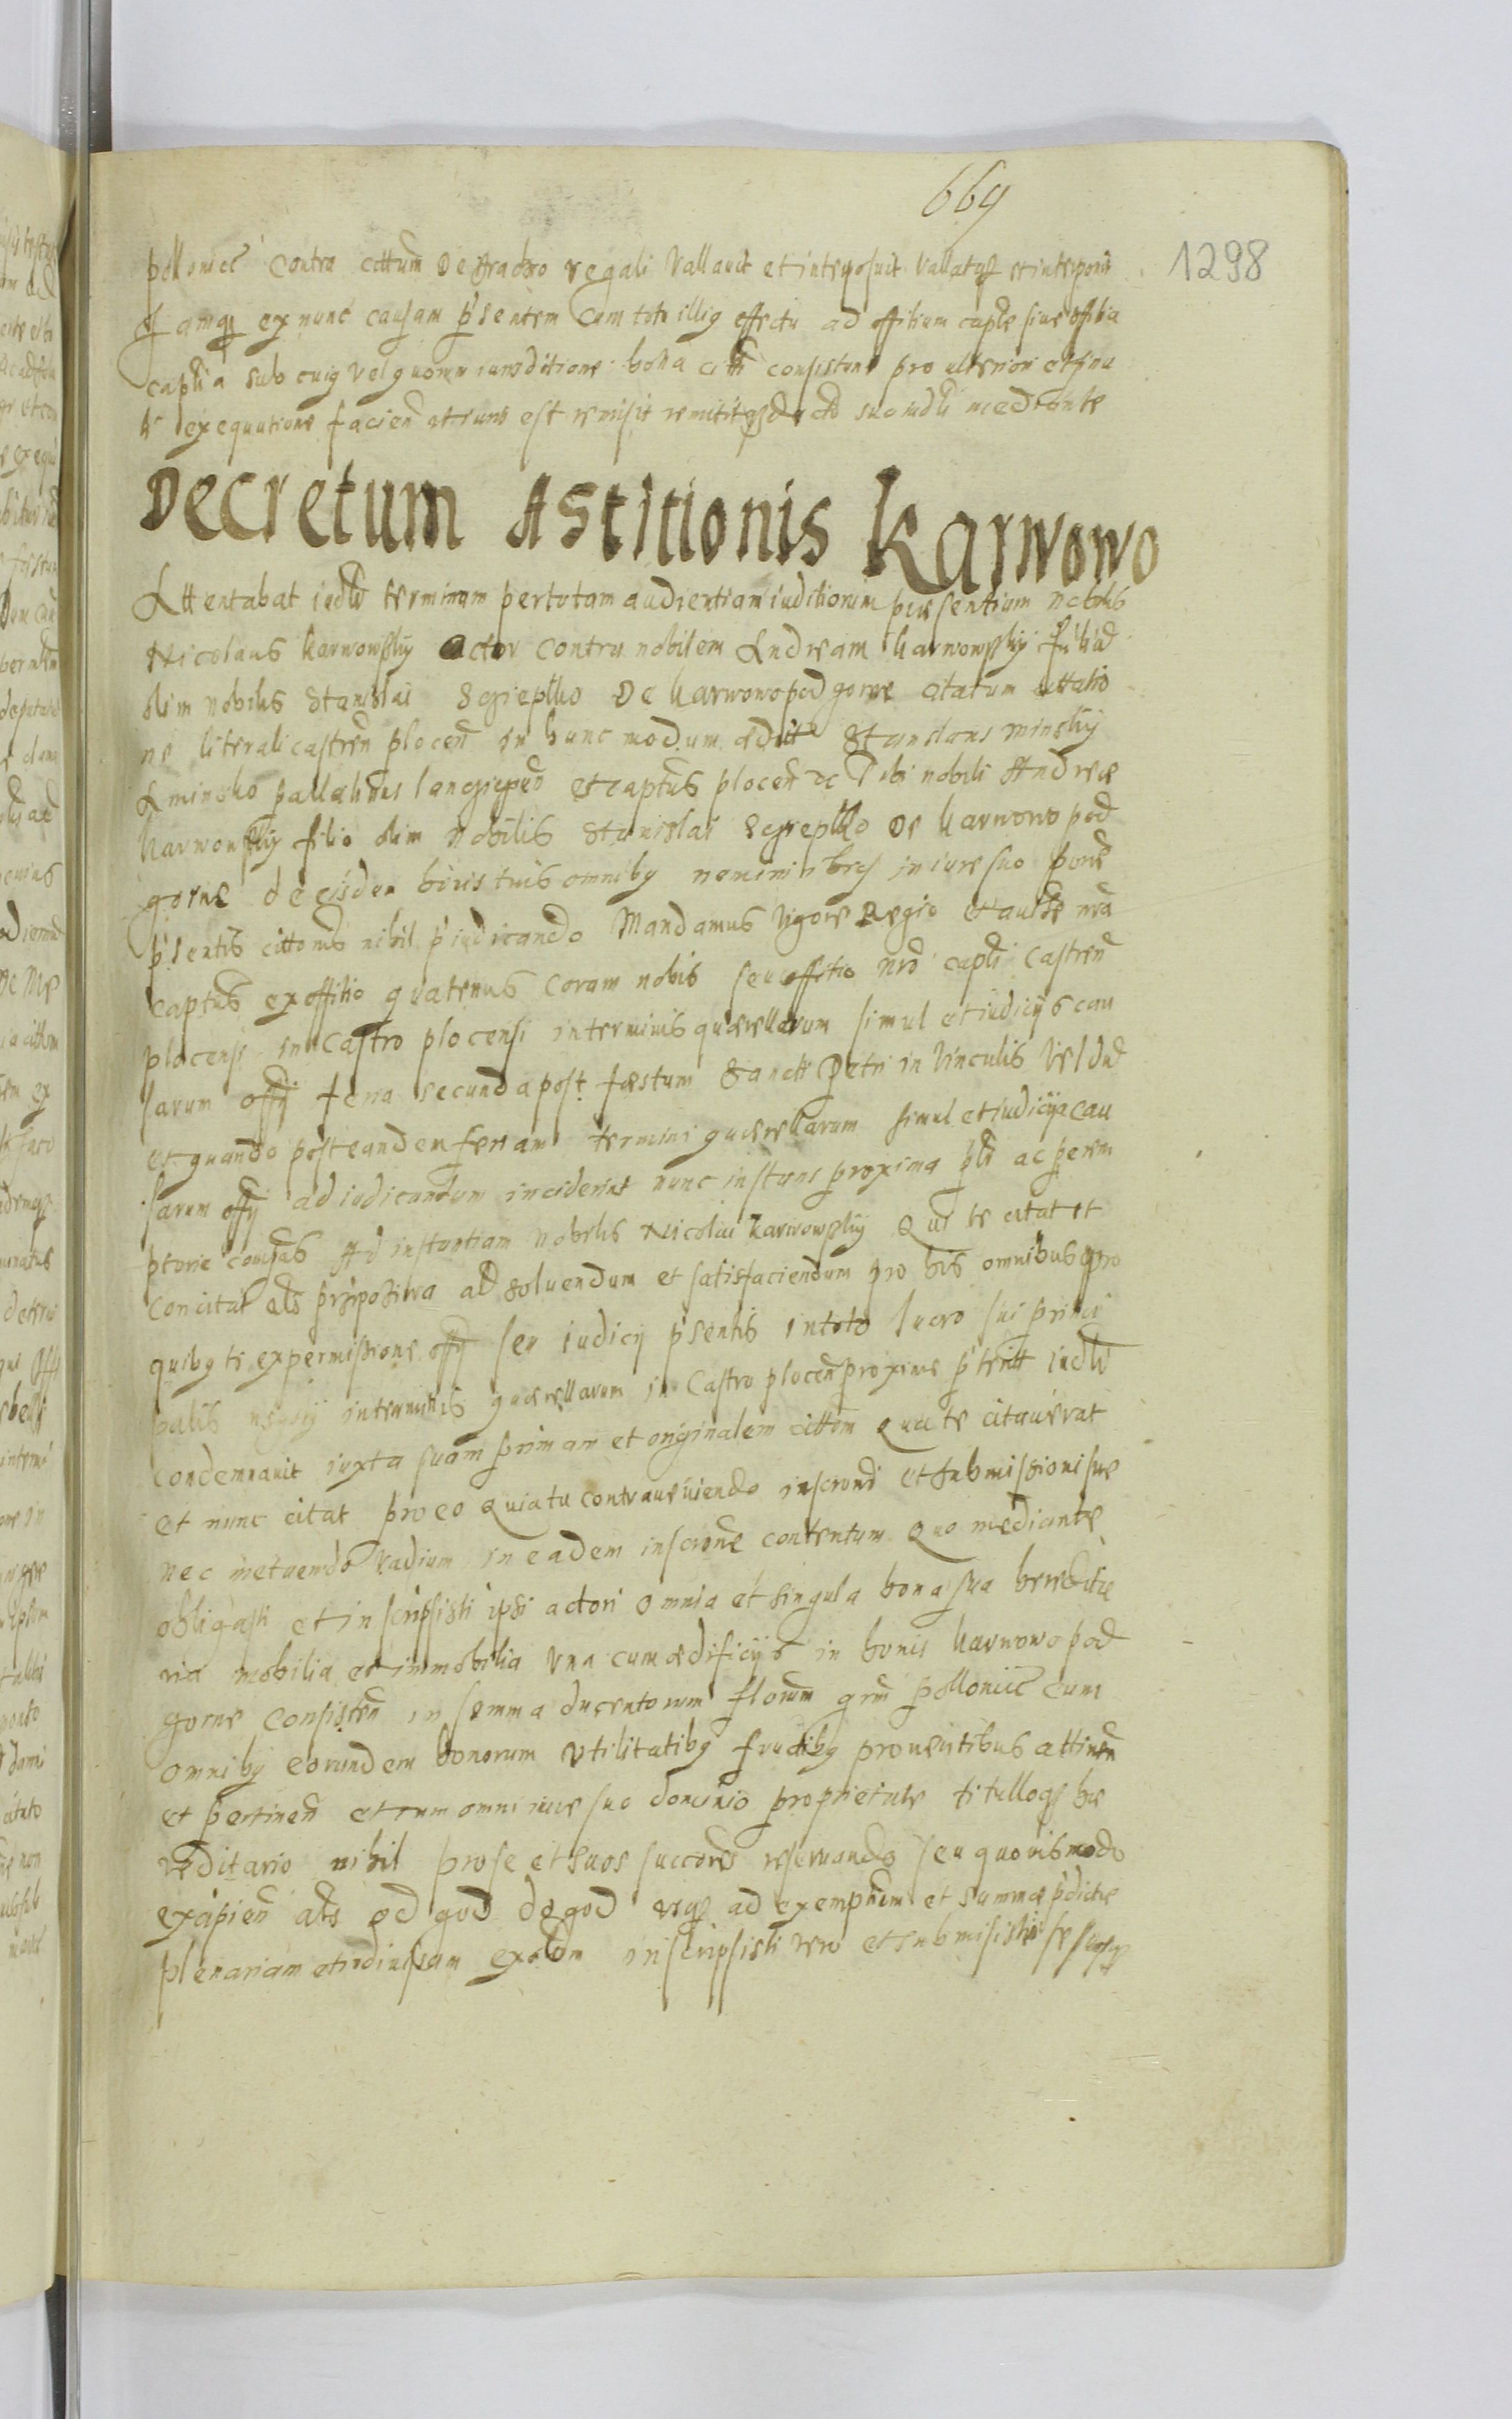 669
1298
pollonicc contra cittum de Stradxo regali vallavit et interposuit vallatqȝ et interponit
Jamqȝ ex nunc causam p'sentem Cum toto illiq effectu ad offitium caple sive offitia
captlia sub cuiq vel quorum iurisditione bona citti consistunt pro ulteriori et fina
li exequutione facien utriuns est remisit remititqȝ decto suo iudli mediante
Decretum Astitionis Karwowo
Attentabat iudlr terminum per totam audientiam iuditiorum praesentium nobilis
Nicolaus Karwowskij Actor contra nobilem Andream Karwowskij filiu
olim nobilis Stanislai Sgiepllo De Karwowo podgorne citatum cittatio
ne literali castren plocen in hunc modum ædit Stanislaus Minskij
A minsko pallatinus lancgicgen et captus plocen ec Tibi nobili Andreæ
Karwowskij filio olim nobilis Stanislai Sgiepllo De Karwowo pod
gorne de eisdem bonis tuis omniby nemini bus in iure suo pone
p'sentis cittonis nihil p'iudicando Mandamus vigore Regio et aucte nra
captus ex offitio quatenus Coram nobis seu offitio nro capli Castren
plocensi in Castro plocensi in terminis quærellarum simul et iudicijs cau
sarum offy feria secunda post fæstum Sancti Petri in Vinculis vel dud
et quando post eandem feriam termini quærellarum simul et iudicija cau
sarum offy ad iudicandum inciderint nunc instans proxima plr ac perem
ptorie compas Ad instantiam nobilis Nicolai Karwowskij Qui te citat et
concitat als przipoziwa ad soluendum et satisfaciendum pro his omnibus pro
quiby te ex permissione offy seu iudicij p'sentis in toto lucro sui princi
palis in terminis quærellarum in Castro plocen proxime p'teritt iudlr
condemnavit iuxta suam primam et originalem cittom Qua te citaverat
et nunc citat pro eo Quia tu contraveniendo inscroni et submissioni sue
nec metuendo vadium in eadem inscrone contentum Quo mediante
obligasti et inscripsisti ipsi actori omnia et singula bona sua heredita
ria mobilia et immobilia una cum ædificijs in bonis Karwowo pod
gorne consisten in summa ducentorum florum grm pollonicc cum
omniby eorundem bonorum utilitatiby fructiby proventibus attinen
et pertinen et cum omni iure suo dominio proprietate titulloqȝ hæ
reditario nihil pro se et suos succores reservando seu quovismodo
excipien als od god do god usqȝ ad exempnem et summæ p'dictæ
plenariam et indivisam exolom inscripsisti vero et submisisti